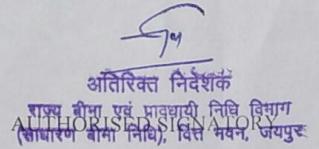 अतिरिक्त निदेशक
राज्य बीमा एवं प्रावधायी निधि विभाग
AUTHORISED SIGNATORY
(साधारण बीमा निधि), वित्त भवन, जयपुर